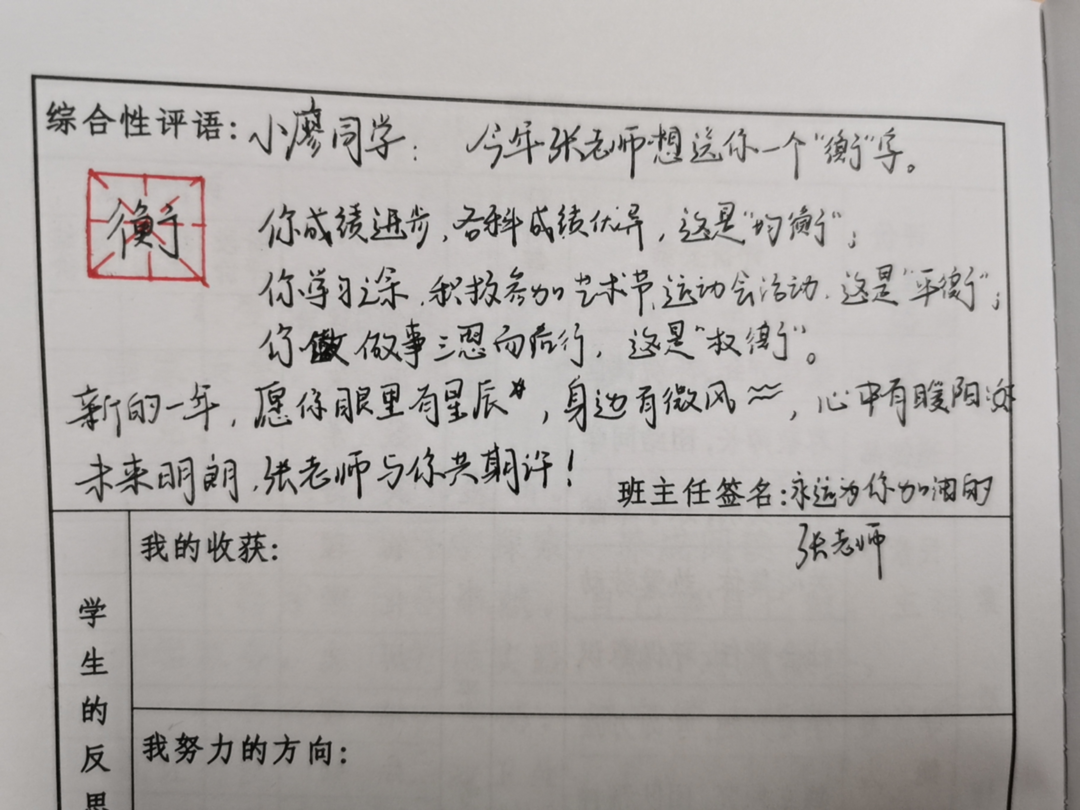 综合性评语：小廖同学： 今年张老师想送你一个“衡”字。
衡
你成绩进步，各科成绩优异，这是“均衡”；
你学习之余，积极参加艺术节、运动会活动，这是“平衡”；
你做事三思而后行，这是“权衡”。
新的一年，愿你眼里有星辰，身边有微风，心中有暖阳
未来明朗，张老师与你共期许！
班主任签名：永远为你加油的
张老师
学生的反思
我的收获：
我努力的方向：